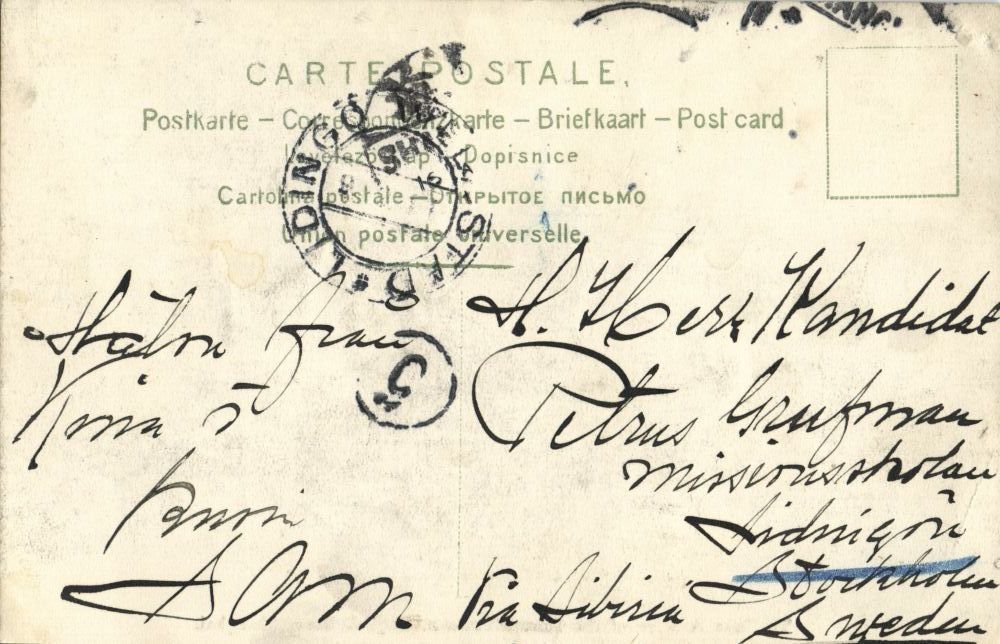 CARTE POSTALE,
Postkarte – Correspondenzkarte – Briefkaart – Post card
Levelezö-Lap – Dopisnice
Cartolina postale – Открытое письмо
Union postale universelle
LIDINGÖ VILLASTAD
SH
5
H. Herr Kandidat
Petrus Grufman
Missionsskolan
Lidingön
Stockholm
Sweden
Via Sibiria
Hälsn från
Kina